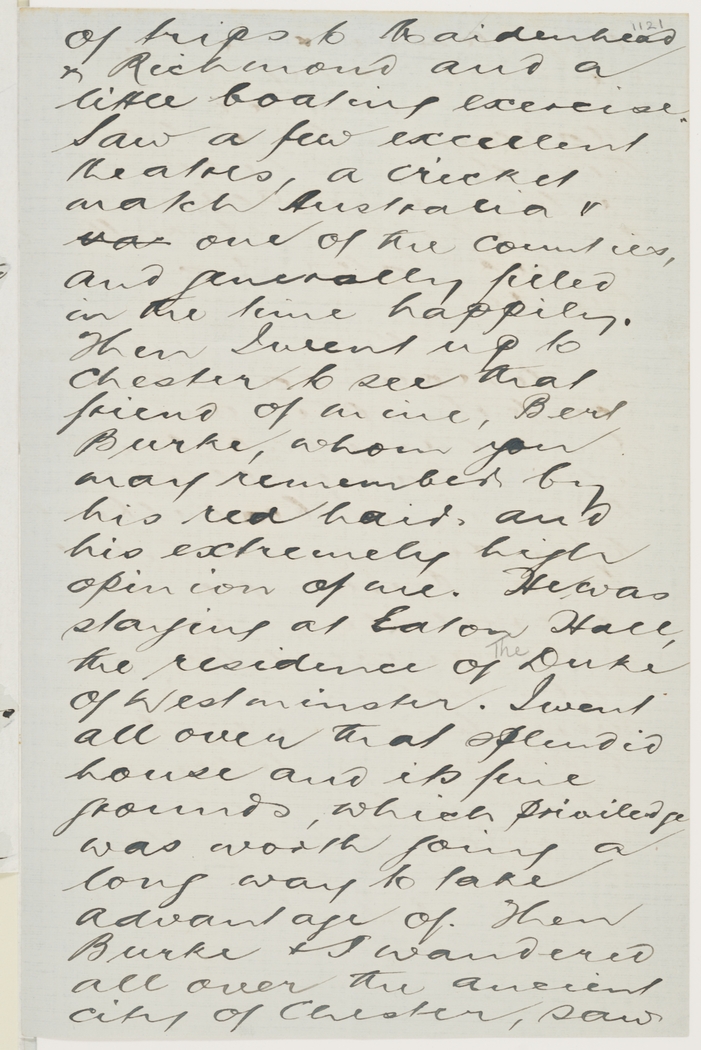 1121
of trips to Maidenhead
& Richmond and a
little boating exercise.
Saw a few excellent
theatres, a cricket
match Australia v
one of the counties,
and generally filled
in the time happily.
Then I went up to
Chester to see that
friend of mine, Bert
Burke, whom you
may remember by
his red hair, and
his extremely high
opinion of me. He was
staying at Eaton Hall,
the residence of The Duke
of Westminster. I went
all over that splendid
house and its fine
grounds, which priviledge
was worth going a
long way to take
advantage of. Then
Burke & I wandered
all over the ancient
city of Chester, saw